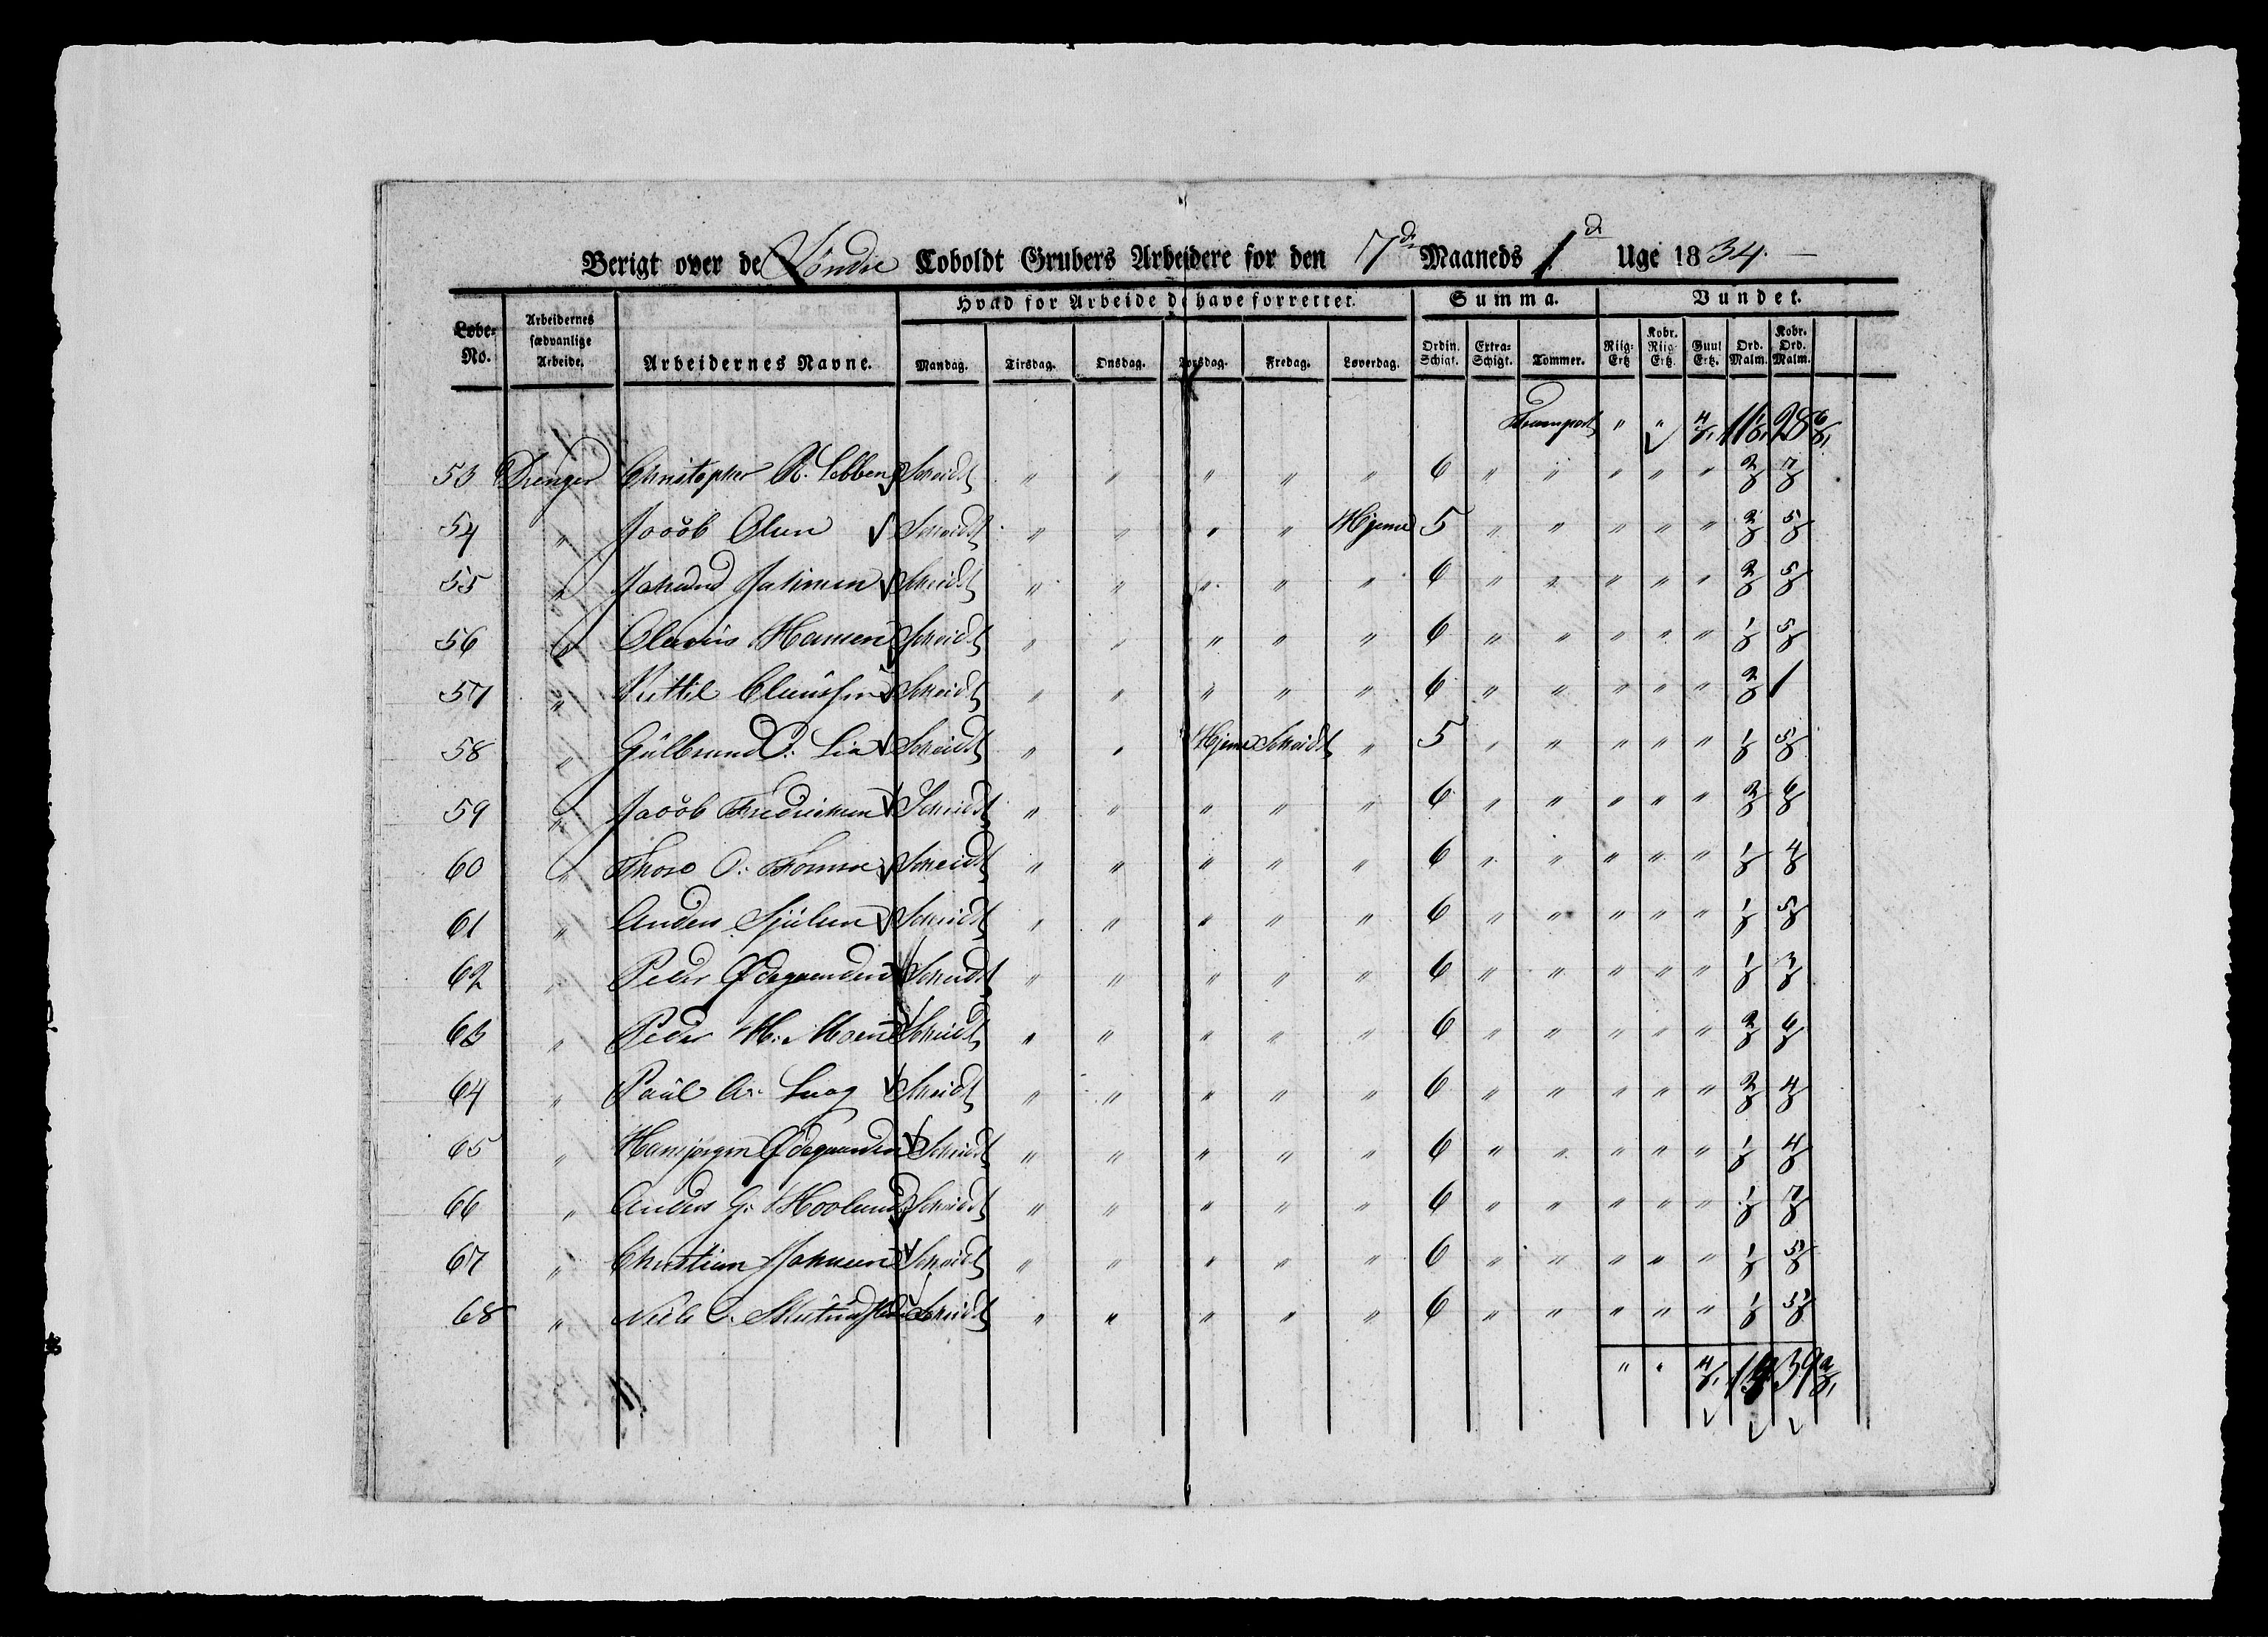 Berigt over de Söndre Coboldt Grubers Arbeidere for den 7de Maaneds 1ste Uge 1834.
Løbe-No. Arbeidernes sædvanlige Arbeide. Arbeidernes Navne. Hvad for Arbeide de have forrettet. Summa. Vundet.
Mandag. Tirsdag. Onsdag. Torsdag. Fredag. Løverdag. Ordin. Schigt. Extra-Schigt. Tommer. Riig-Ertz Kobr. Riig-Ertz. Guul Ertz. Ord. Malm. Kobr. Ord. Malm.
Transport " " 4/8 11 1/8 28 6/8
53 Drenger Christopher A. Lobben Scheidt " " " " " 6 " " " " " 2/8 7/8
54 " Jacob Olsen Scheidt " " " " Hjeme 5 " " " " " 2/8 5/8
55 " Johansen Scheidt " " " " " 6 " " " " " 2/8 5/8
56 " Olavus Hansen Scheidt " " " " " 6 " " " " " 1/8 5/8
57 " Kittil Scheidt " " " " " 6 " " " " " 2/8 1
58 " Gulbrand O. Lia Scheidt " " Hjeme Scheidt " 5 " " " " " 1/8 5/8
59 " Jacob Fredriksen Scheidt " " " " " 6 " " " " " 2/8 6/8
60 " Thore O. Scheidt " " " " " 6 " " " " " 1/8 4/8
61 " Anders Scheidt " " " " " 6 " " " " " 1/8 5/8
62 " Peder Ødegaarden Scheidt " " " " " 6 " " " " " 1/8 7/8
63 " Peder H. Moen Scheidt " " " " " 6 " " " " " 2/8 6/8
64 " Paul A. Scheidt " " " " " 6 " " " " " 2/8 4/8
65 " Hansjørgen Ødegaarden Scheidt " " " " " 6 " " " " " 1/8 4/8
66 " Anders G. Hovland Scheidt " " " " " 6 " " " " " 1/8 7/8
67 " Christian Johnsen Scheidt " " " " " 6 " " " " " 1/8 5/8
68 " Niels O. Scheidt " " " " " 6 " " " " " 1/8 5/8
" " 4/8 39 2/8